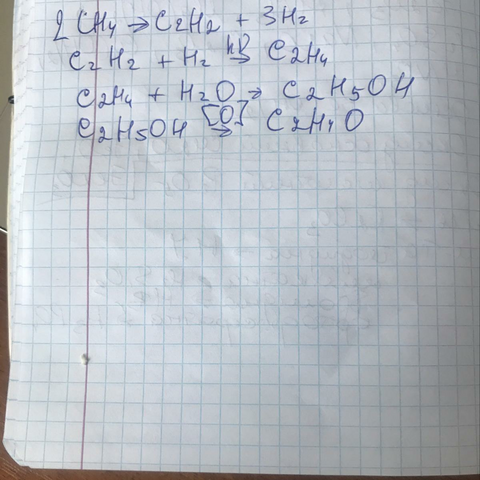 2CH4 → C2H2 + 3H2
C2H2 + H2 → C2H4
C2H4 + H2O → C2H5OH
C2H5OH [O] → C2H4O